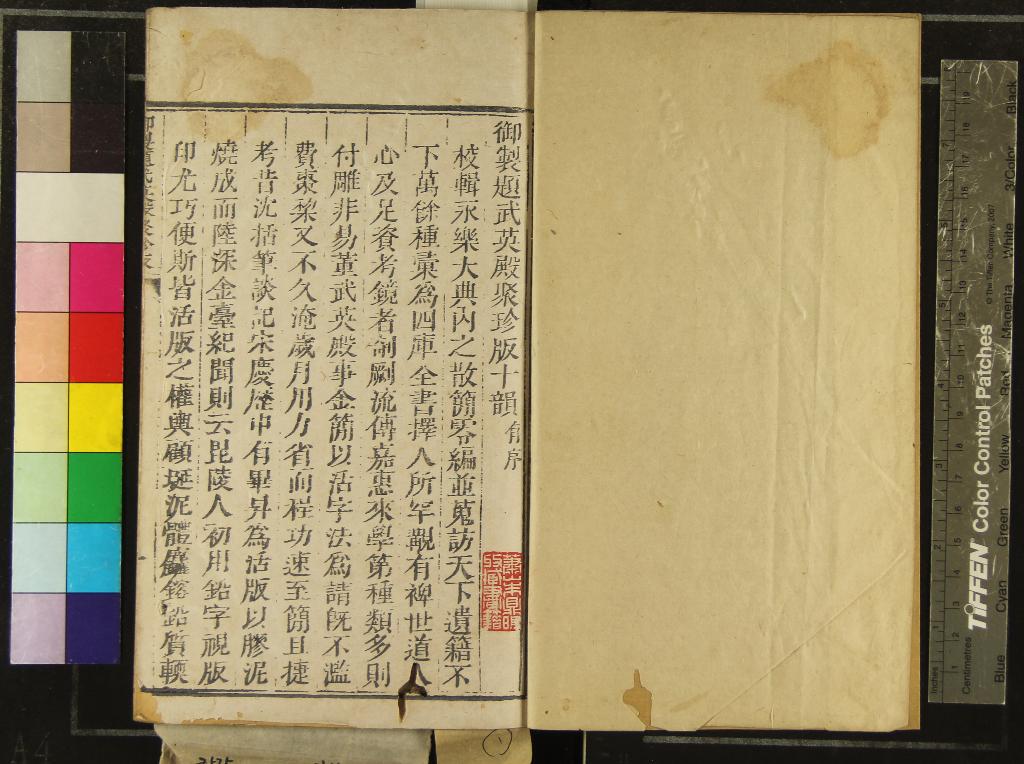 御製題武英殿聚珍版十韻有序
校輯永樂大典內之散簡零編並蒐訪天下遺籍不
下萬餘種彙為四庫全書擇人所罕覯有裨世道人
心及足資考鏡者剞劂流傳嘉惠來學第種類多則
付雕非易董武英殿事金簡以活字法為請既不濫
費棗棃又不久淹歲月用力省而程功速至簡且捷
考昔沈括筆談記宋慶歷中有畢昇為活版以膠泥
燒成而陸深金臺紀聞則云毘陵人初用鉛字視版
印尤巧便斯皆活版之權輿顧埏泥體麤鎔鉛質輭
TIFFEN Color Control Patches
© The Tiffen Company, 2007
Blue Cyan Green Yellow Red Magenta White 3/Color Black
Inches
Centimetres